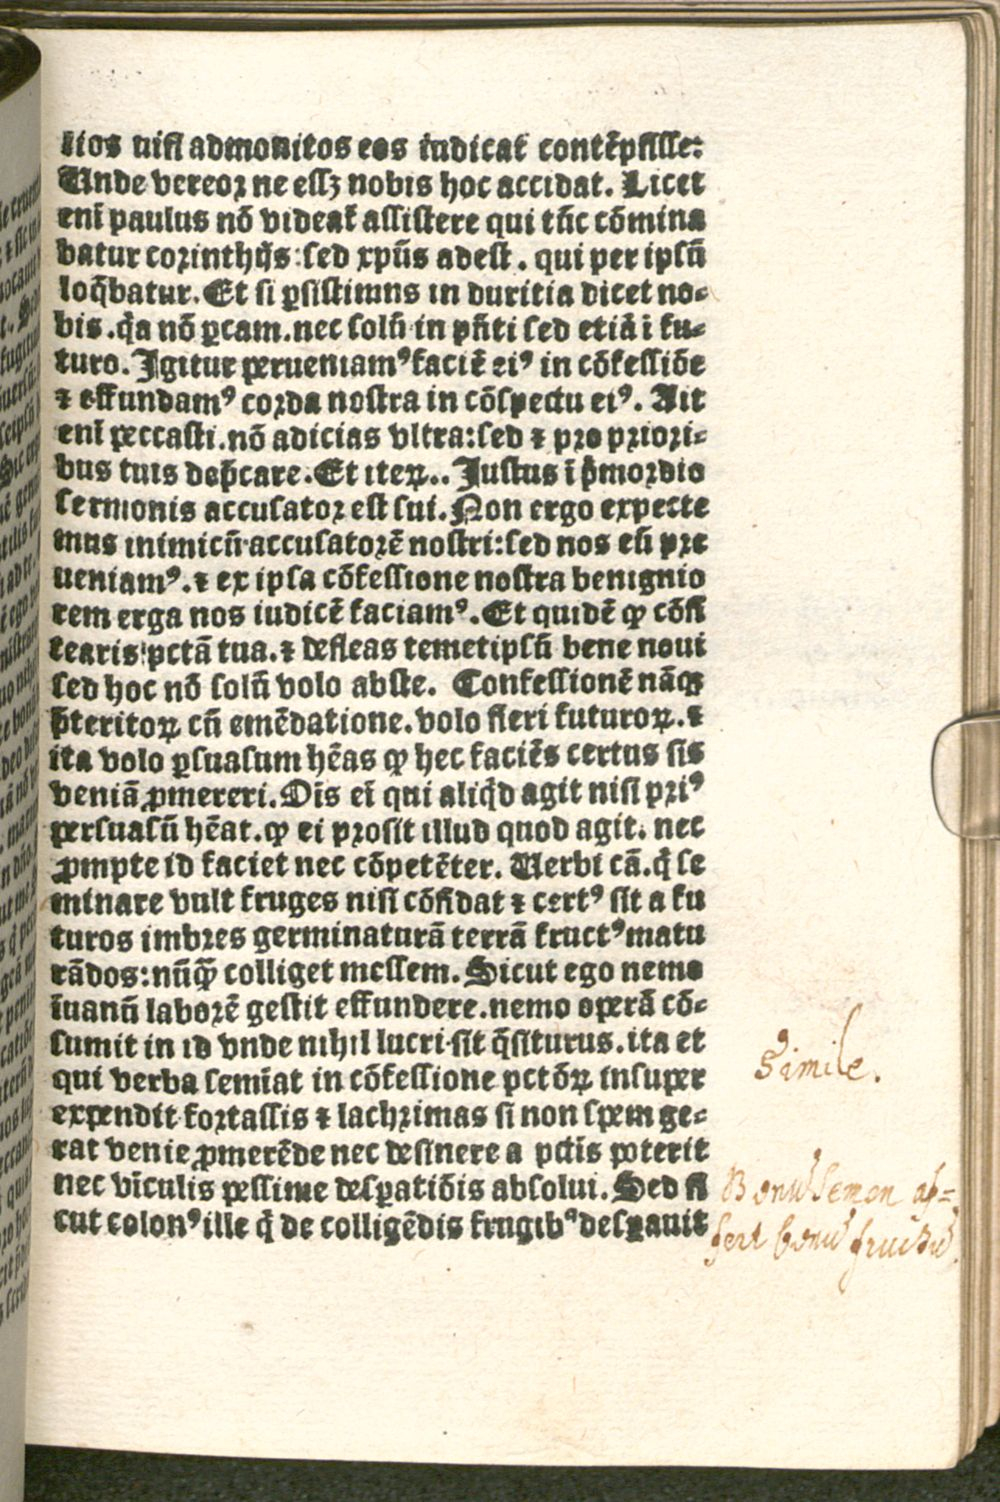 lios nisi admonitos eos iudicat contēpsisse:
Unde vereoꝛ ne essꝫ nobis hoc accidat. Licet
enī paulus nō videat̄ assistere qui tūc cōmina
batur coꝛinthijs: sed xp̄us adest. qui per ipsū
loq̄batur. Et si ꝑsistimus in duritia dicet no⸗
bis. q̇a nō ꝑcam. nec solū in pn̄ti sed etiā ī fu⸗
turo. Igitur perueniamꝰ faciē eiꝰ in cōfessiōe
⁊ effundamꝰ coꝛda nostra in cōspectu eiꝰ. Ait
enī peccasti. nō adicias vltra: sed ⁊ pꝛo pꝛioꝛi⸗
bus tuis dep̄care. Et iteꝝ.. Justus ī p̄moꝛdio
sermonis accusatoꝛ est sui. Non ergo expecte
mus inimicū accusatoꝛē nostri: sed nos eū pꝛe
ueniamꝰ. ⁊ ex ipsa cōfessione nostra benignio
rem erga nos iudicē faciamꝰ. Et quidē ꝙ cōfi
tearis pctā tua. ⁊ defleas temetipsū bene noui
sed hoc nō solū volo abste. Confessionē nāqꝫ
p̄teritoꝝ cū emēdatione. volo fieri futuroꝝ. ⁊
ita volo ꝑsuasum hēas ꝙ hec faciēs certus sis
veniā ꝓmereri. Oīs eī qui aliq̇d agit nisi pꝛiꝰ
persuasū hēat. ꝙ ei pꝛosit illud quod agit. nec
ꝓmpte id faciet nec cōpetēter. Verbi cā. q̇ se
minare vult fruges nisi cōfidat ⁊ certꝰ sit a fu
turos imbꝛes germinaturā terrā fructꝰ matu
rādos: nūq̄ꝫ colliget messem. Sicut ego nemo
īuanū laboꝛē gestit effundere. nemo operā cō⸗
sumit in id vnde nihil lucri sit q̄siturus. ita et
qui verba semīat in cōfessione pctōꝝ insuper
expendit foꝛtassis ⁊ lachꝛimas si non spem ge⸗
rat venie ꝓmerēde nec desinere a pctīs poterit
nec vīculis pessime desꝑatiōis absolui. Sed si
cut colonꝰ ille q̇ de colligēdis frugibꝰ desꝑauit
Simile.
Bonū Semen af=
fert bonū fructū.